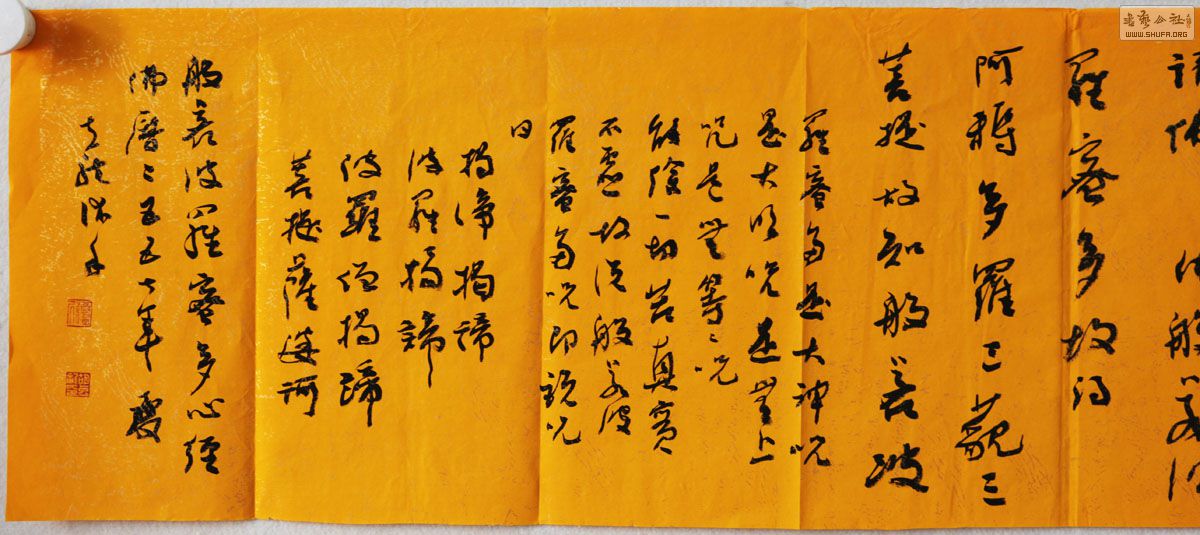 諸佛依般若波
羅蜜多故得
阿耨多羅三藐三
菩提故知般若波
羅蜜多是大神咒
是大明咒是無上
咒是無等等咒
能除一切苦真實
不虛故說般若波
羅蜜多咒即說咒
曰
揭諦揭諦
波羅揭諦
波羅僧揭諦
菩提薩婆訶
般若波羅蜜多心經
佛曆二五五七年夏
沐手
書藝公社
WWW.SHUFA.ORG